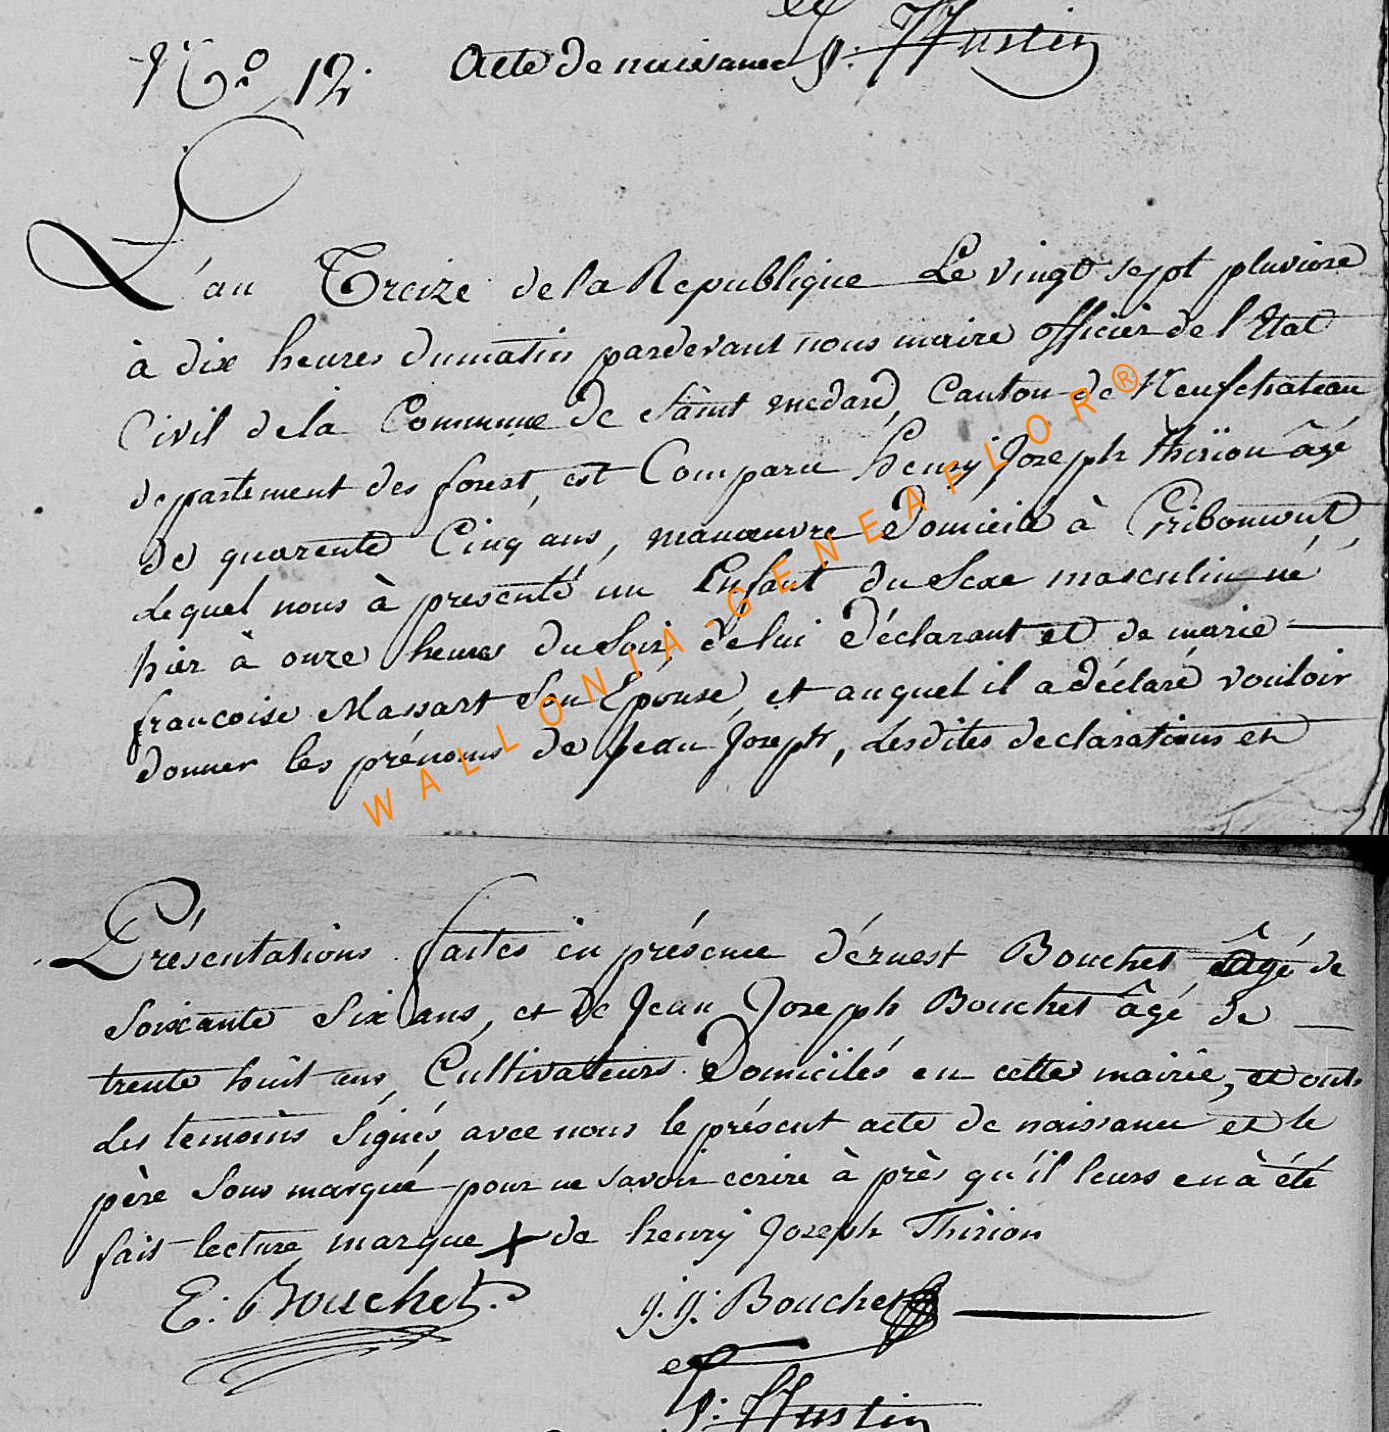 et
N.º 12. Acte de naissance J: Hustin
L'an Treize de la Republique Le vingt sept pluviose
à dix heures du matin pardevant nous maire officier de l'Etat
Civil de la Commune de Saint medard, Canton de Neufchateau
departement des forest, est Comparu henry Joseph Thirion âgé
de quarente Cinq ans, manœuvre Domicilié à Gribomont,
Lequel nous à presenté un Enfant du Sexe masculin né
hier à onze heures du Soir, de lui Déclarant et de marie
francoise Massart Son Epouse, et auquel il a déclaré vouloir
donner les prénoms de Jean Joseph, Lesdites declarations et
Présentations faites en présence d'érnest Bouchet Âgé de
Soixante Six ans, et De Jean Joseph Bouchet âgé de
trente huit ans, Cultivateurs Domicilés en cette mairie, et ont
Les temoins Signés avec nous le présent acte de naissance et le
père Sous marqué pour ne savoir ecrire à près qu'il leurs en à été
fait lecture, marque + de henry Joseph Thirion
E. Bouchet. j. j. Bouchet
et
J: Hustin
WALLONIA-GENEAFLOR®